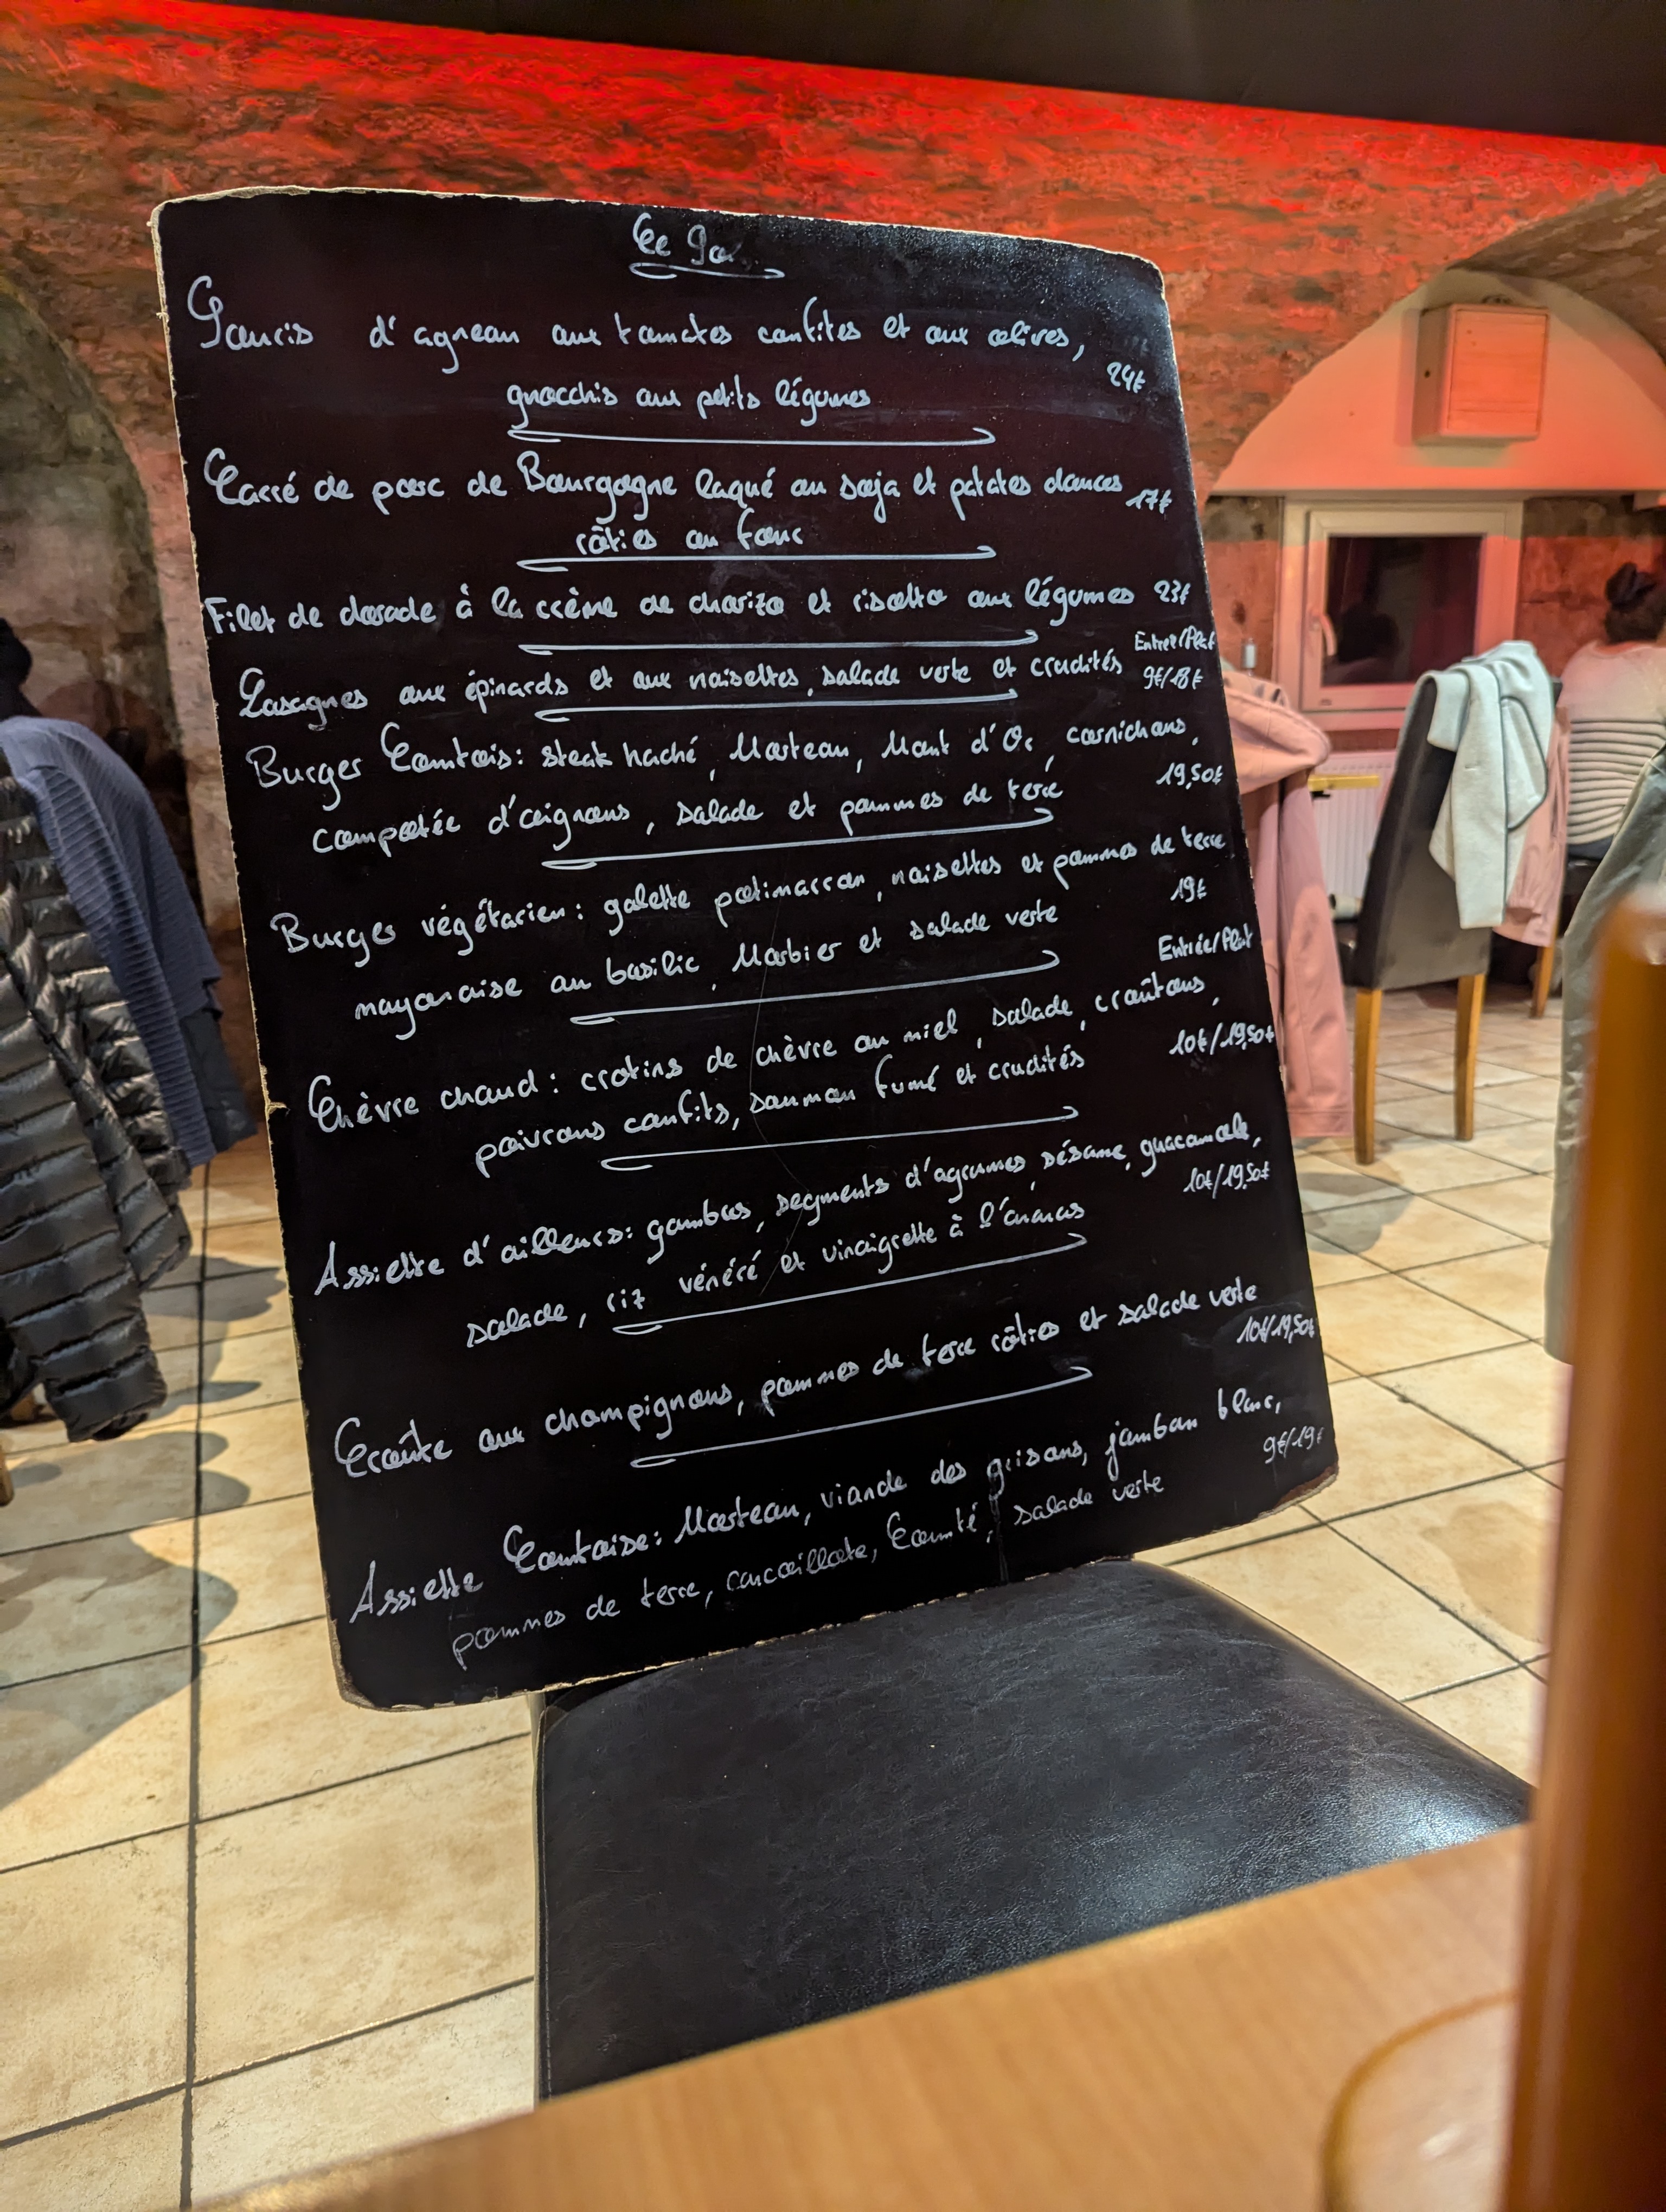 Ce
Souris d'agneau aux tomates confites et aux olives,
24€
gnocchis aux petits légumes
Carré de porc de Bourgogne laqué au soja et patates douces 17€
rôties au four
Filet de dorade à la crème de chorizo et risotto aux légumes 23€
Entrée/Plat
Lasagnes aux épinards et aux noisettes, salade verte et crudités 9€/18€
Burger Comtois: steak haché, Morteau, Mont d'Or, cornichons,
compotée d'oignons, salade et pommes de terre 19,50€
Burger végétarien: galette potimarron, noisettes et pommes de terre
19€
mayonaise au basilic, Morbier et salade verte
Entrée/Plat
Chèvre chaud: crotins de chèvre au miel, salade, croûtons,
poivrons confits, saumon fumé et crudités 10€/19,50€
Assiette d'ailleurs: gambas, segments d'agrumes, sésame, guacamole,
salade, riz vénéré et vinaigrette à l'ananas 10€/19,50€
Croûte aux champignons, pommes de terre rôties et salade verte
10€/19,50€
Assiette Comtoise: Morteau, viande des grisons, jambon blanc,
pommes de terre, cancoillote, Comté, salade verte 9€/19€